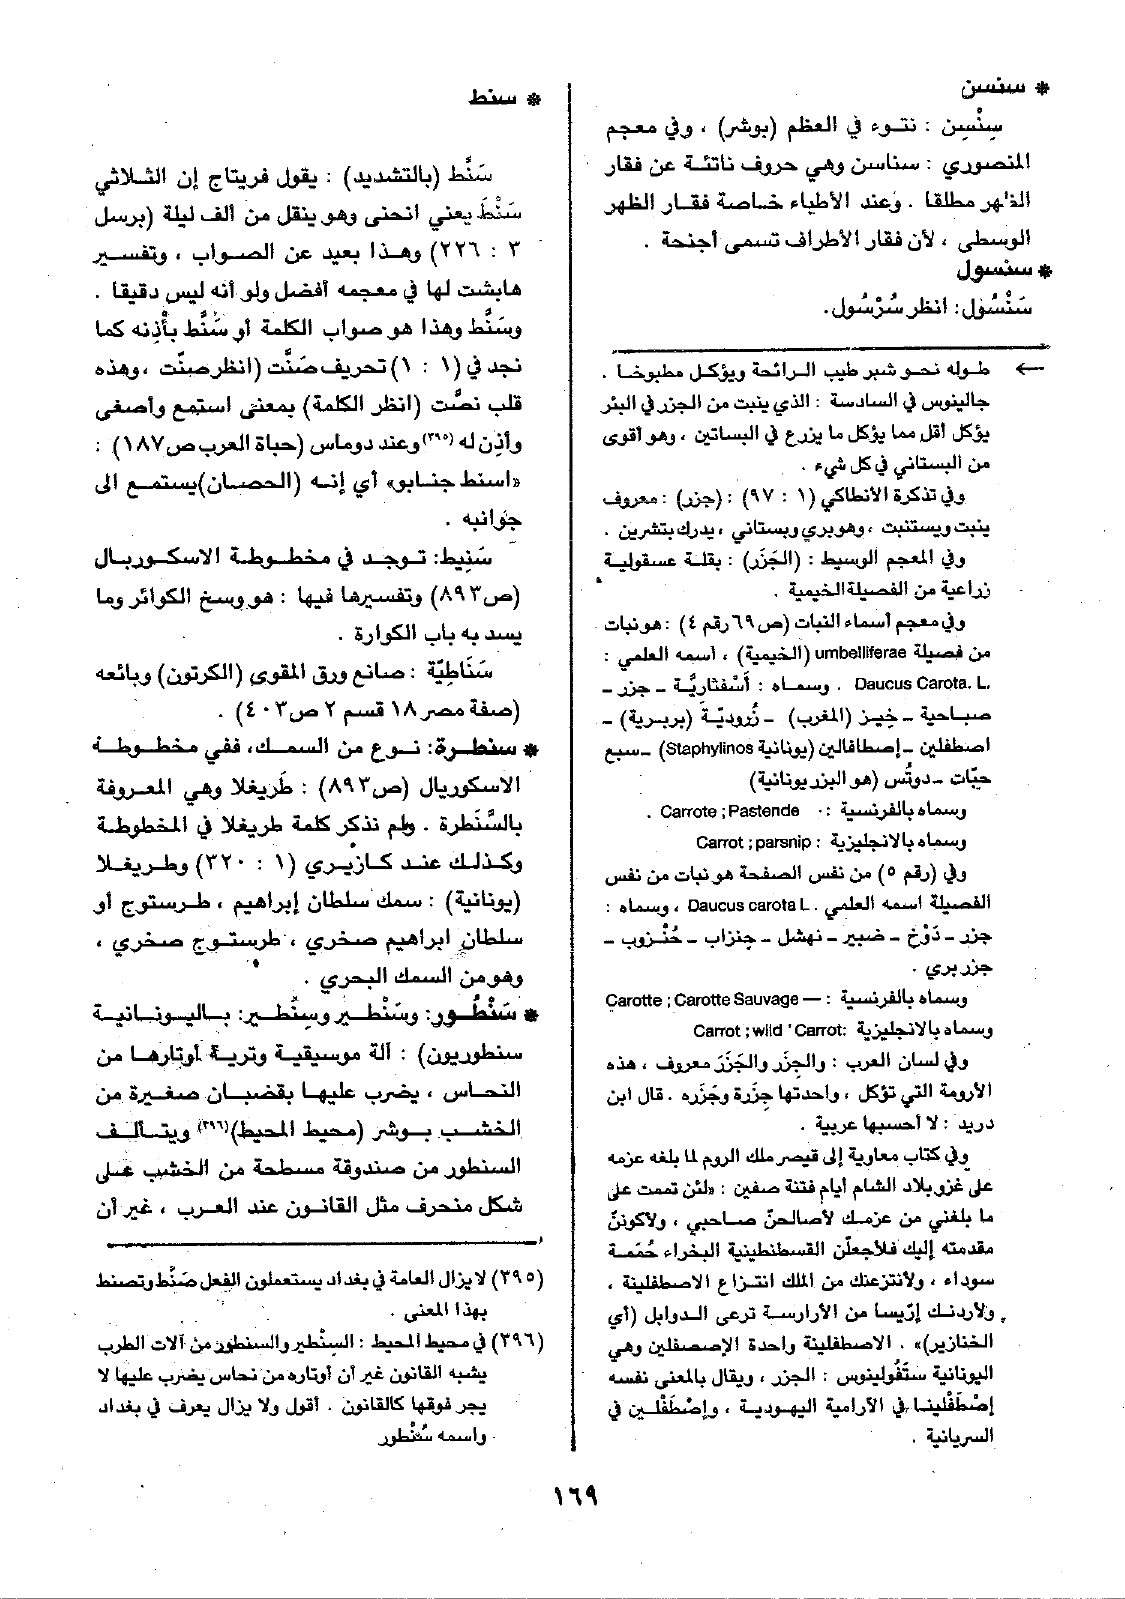 * سنسن
سِنْسِن : نتوء في العظم (بوشر) ، وفي معجم
المنصوري : سناسن وهي حروف ناتئة عن فقار
الظهر مطلقا . وعند الأطباء خاصة فقار الظهر
الوسطى ، لأن فقار الأطراف تسمى أجنحة .
* سنسول
سَنْسُول : انظر سُرْسُول.
← طوله نحو شبر طيب الرائحة ويؤكل مطبوخا .
جالينوس في السادسة : الذي ينبت من الجزر في البئر
يؤكل أقل مما يؤكل ما يزرع في البساتين ، وهو أقوى
من البستاني في كل شيء .
وفي تذكرة الأنطاكي (١ : ٩٧) : (جزر) : معروف
ينبت ويستنبت ، وهو بري وبستاني ، يدرك بتشرين .
وفي المعجم الوسيط : (الجَزَر) : بقلة عسقولية
زراعية من الفصيلة الخيمية .
وفي معجم أسماء النبات (ص ٦٩ رقم ٤) : هو نبات
من فصيلة umbelliferae (الخيمية) ، أسمه العلمي :
Daucus Carota. L. . وسماه : أَسْفَنَّارِيَّة ــ جزر ــ
صباحية ــ خيز (المغرب) ــ زُروديّة (بربرية) ــ
اصطفلين ــ إصطافالين (يونانية Staphylinos) ــ سبع
حيّات ــ دوتُس (هو البزر يونانية)
وسماه بالفرنسية : Carrote ; Pastende .
وسماه بالانجليزية : Carrot ; parsnip
وفي (رقم ٥) من نفس الصفحة هو نبات من نفس
الفصيلة اسمه العلمي Daucus carota L. ، وسماه :
جزر ــ دَوْخ ــ ضبير ــ نهشل ــ جنزاب ــ حُنْزوب ــ
جزر بري .
وسماه بالفرنسية : — Carotte ; Carotte Sauvage
وسماه بالانجليزية :Carrot ; wild ' Carrot
وفي لسان العرب : والجِزَر والجَزَر معروف ، هذه
الأرومة التي تؤكل ، واحدتها جِزَرة وجَزَره . قال ابن
دريد : لا أحسبها عربية .
وفي كتاب معاوية إلى قيصر ملك الروم لما بلغه عزمه
على غزو بلاد الشام أيام فتنة صفين : «لئن تممت على
ما بلغني من عزمك لأصالحنّ صاحبي ، ولاكوننّ
مقدمته إليك فلأجعلّن القسطنطينية البخراء حُمَمة
سوداء ، ولانتزعنك من الملك انتزاع الاصطفلينة ،
ولأردنك إرّيسا من الأرارسة ترعى الدوابل (أي
الخنازير)» . الاصطفلينة واحدة الإصصفلين وهي
اليونانية ستَفُولينوس : الجزر ، ويقال بالمعنى نفسه
إصْطَفْلِينا في الآرامية اليهودية ، وإصْطَفْلين في
السريانية .
* سنط
سَنَّط (بالتشديد) : يقول فريتاج إن الثلاثي
سَنْطَ يعني انحنى وهو ينقل من ألف ليلة (برسل
٣ : ٢٢٦) وهذا بعيد عن الصواب ، وتفسير
هابشت لها في معجمه أفضل ولو أنه ليس دقيقا .
وسَنَّط وهذا هو صواب الكلمة أو سَنَّط بأذنه كما
نجد في (١ : ١) تحريف صَنَّت (انظر صنّت ، وهذه
قلب نصَّت (انظر الكلمة) بمعنى استمع وأصغى
وأذِن له (٣٩٥) وعند دوماس (حياة العرب ص ١٨٧) :
«اسنط جنابو» أي إنه (الحصان) يستمع الى
جوانبه .
سَنِيط: توجد في مخطوطة الاسكوريال
(ص ٨٩٣) وتفسيرها فيها : هو وسخ الكوائر وما
يسد به باب الكوارة .
سَنَاطِيّة : صانع ورق المقوى (الكرتون) وبائعه
(صفة مصر ١٨ قسم ٢ ص ٤٠٣) .
* سنطرة: نوع من السمك، ففي مخطوطة
الاسكوريال (ص ٨٩٣) : طَريغلا وهي المعروفة
بالسَّنَطرة . ولم نذكر كلمة طريغلا في المخطوطة
وكذلك عند كازيري (١ : ٣٢٠) وطريغلا
(يونانية) : سمك سلطان إبراهيم ، طرستوج أو
سلطان ابراهيم صخري ، طرستوج صخري ،
وهو من السمك البحري .
* سَنْطُور: وسَنْطير وسِنْطير: باليونانية
سنطوريون) : آلة موسيقية وترية أوتارها من
النحاس ، يضرب عليها بقضبان صغيرة من
الخشب بوشر (محيط المحيط)(٣٩٦) ويتألف
السنطور من صندوقة مسطحة من الخشب على
شكل منحرف مثل القانون عند العرب ، غير أن
(٣٩٥) لا يزال العامة في بغداد يستعملون الفعل صَنَّط وتصنط
بهذا المعنى .
(٣٩٦) في محيط المحيط : السِنْطير والسنطور من آلات الطرب
يشبه القانون غير أن أوتاره من نحاس يضرب عليها لا
يجر فوقها كالقانون . أقول ولا يزال يعرف في بغداد
واسمه سُنْطور
١٦٩